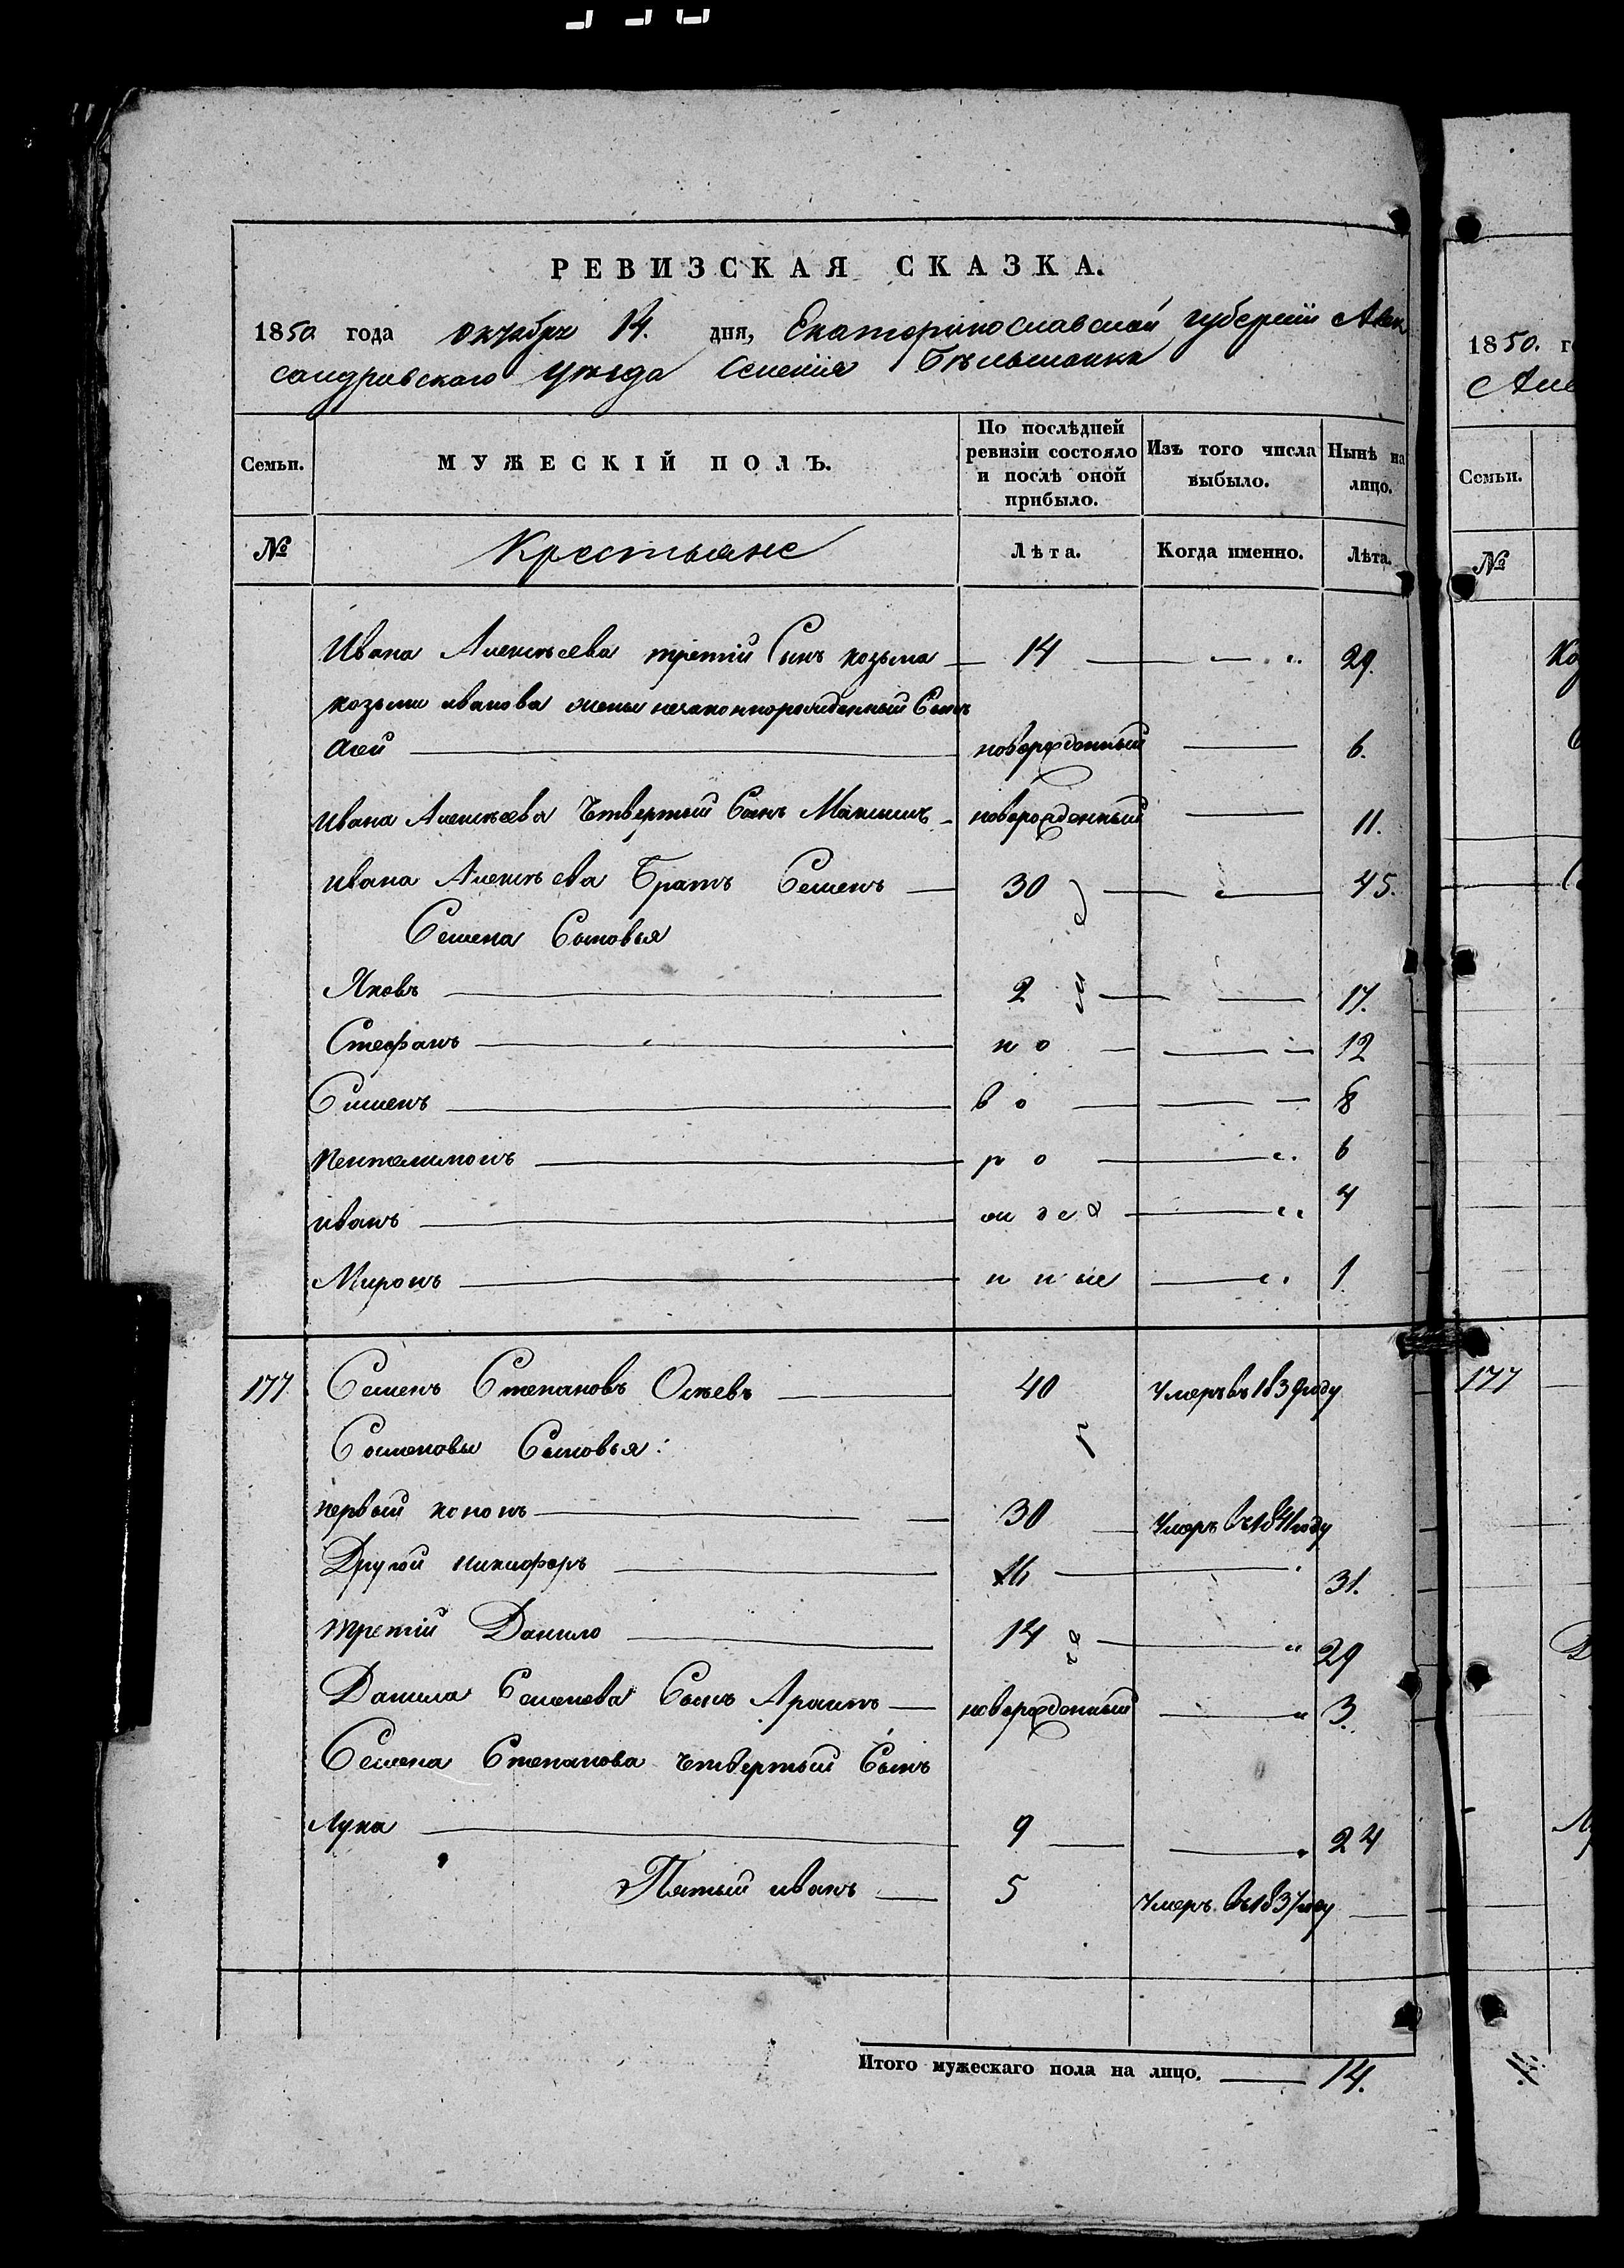 РЕВИЗСКАЯ СКАЗКА.
1850 года октября 14. дня, Екатеринославской губернии Алек
сандровскаго уѣзда Селенiя Бѣльманка
Семьи. МУЖЕСКІЙ ПОЛЪ. По послѣдней ревизіи состояло и послѣ оной прибыло. Изъ того числа выбыло. Нынѣ на лицо.
№ Крестьяне Лѣта. Когда именно. Лѣта.
Ивана Алексѣева третiй Сынъ козьма 14 29.
козьмы иванова жены незаконнорожденный Сынъ
новорожденный 6.
ивана Алексѣева Четвертый Сынъ Максимъ новорожденный 11.
ивана Алексѣева Братъ Семенъ 30 45.
Семена Сыновья
Яковъ 2 17.
Стефанъ н о 12
Симеонъ в о 8
пентелимонъ р о 6
иванъ ж де 4
Миронъ н н ые 1
177 Семенъ Степановъ 40 Умеръ въ 1839 году
Семеновы Сыновья:
первый кононъ 30 Умеръ въ 1841 году
Другой никифоръ 16 31.
третiй Данило 14 29
Данила Семенова Сынъ новорожденный 3.
Семена Степанова четвертый Сынъ
Лука 9 24
Пятый иванъ 5 Умеръ въ 1837 году
Итого мужескаго пола на лицо. 14.
1850. г
Але
Семьи.
№
177